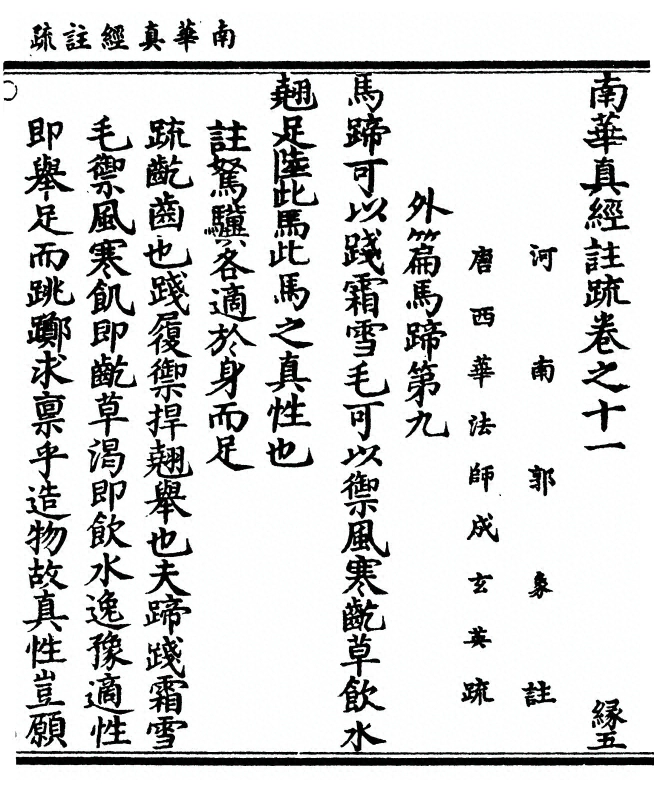 南華真經註疏
南華真經註疏卷之十一 緣五
河南郭象註
唐西華法師成玄英疏
外篇馬蹄第九
馬蹄可以踐霜雪毛可以禦風寒齕草飲水
翹足陸此馬此馬之真性也
註駑驥各適於身而足
疏齕齒也踐履禦捍翹舉也夫蹄踐霜雪
毛禦風寒飢即齕草渴即飲水逸豫適性
即舉足而跳躑求稟乎造物故真性豈願